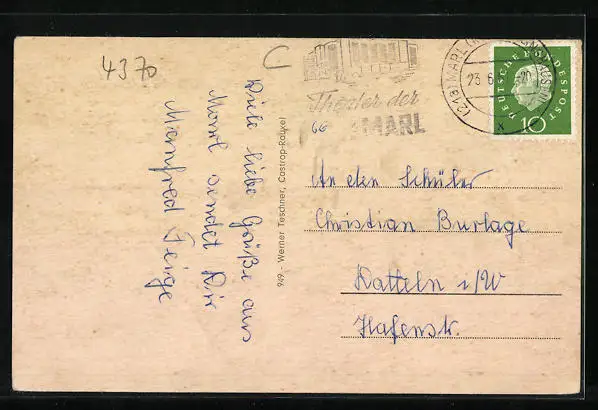 4370
C
Viele liebe Grüße aus
Marl sendet Dir
Manfred Feige
949 - Werner Teschner, Castrop-Rauxel
Theater der
MARL
(21a) MARL
23.6.
DEUTSCHE BUNDESPOST
10
66
An den Schüler
Christian Burlage
Datteln i/W
Hafenstr.